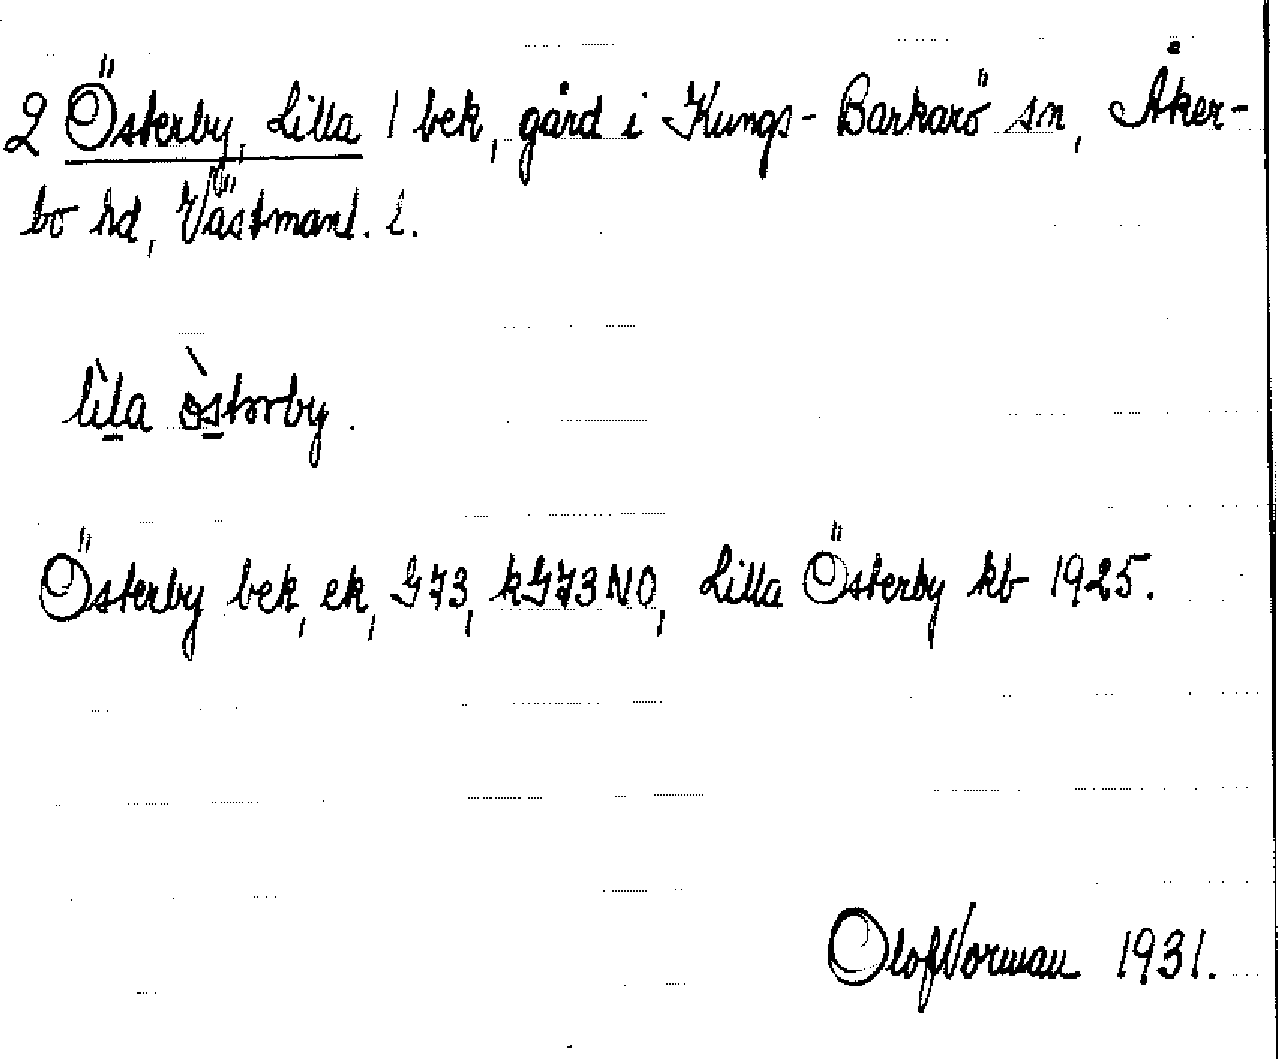 2 Österby, Lilla / bek, gård i Kungs-Barkarö sn, Åker-
bo hd, Västmanl. l.
lìla òstərby.
Österby bek, ek, G73, kG73NO, Lilla Österby kb 1925.
Olof Norman 1931.